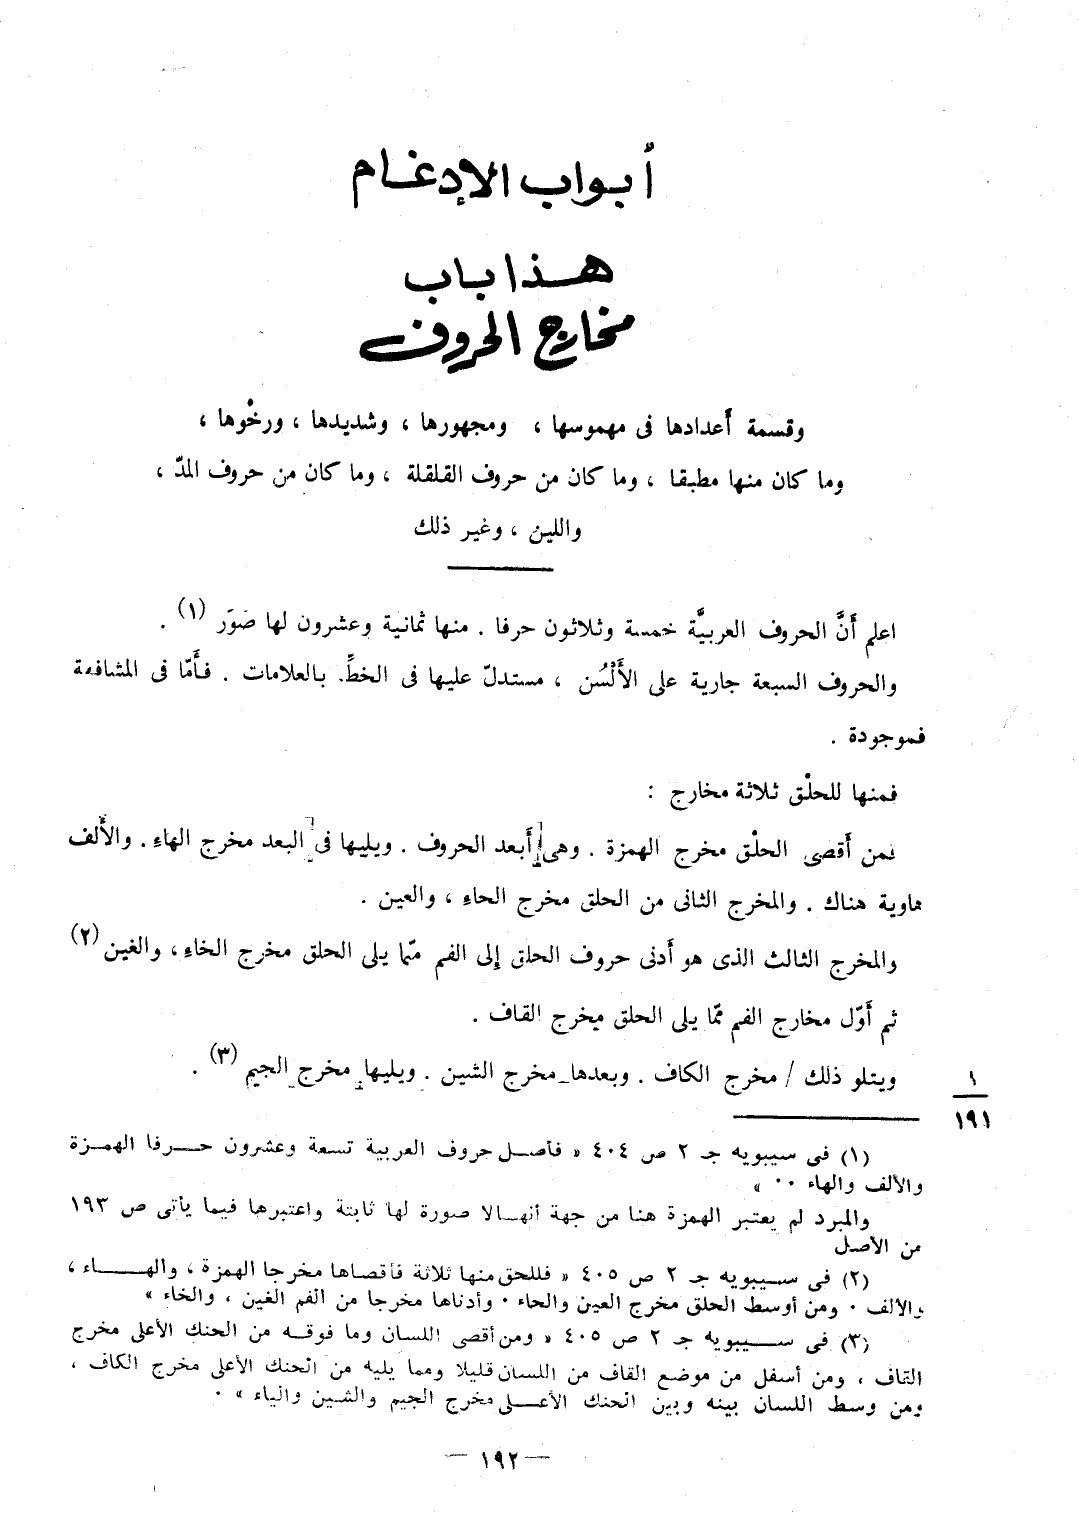 أبواب الإدغام
هذا باب
مخارج الحروف
وقسمة أعدادها فى مهموسها ، ومجهورها ، وشديدها ، ورخْوها ،
وما كان منها مطبقا ، وما كان من حروف القلقلة ، وما كان من حروف المدّ ،
واللين ، وغير ذلك
اعلم أَنَّ الحروف العربيَّة خمسة وثلاثون حرفا . منها ثمانية وعشرون لها صُوَر (١) .
والحروف السبعة جارية على الأَلْسُن ، مستدلّ عليها فى الخطِّ. بالعلامات . فأَمّا فى المشافهة
فموجودة .
فمنها للحلْق ثلاثة مخارج :
فمن أَقصى الحلْق مخرج الهمزة . وهى [أَبعد الحروف . ويليها فى] البعد مخرج الهاءِ . والأَلف
هاوية هناك . والمخرج الثانى من الحلق مخرج الحاءِ ، والعين .
والمخرج الثالث الذى هو أَدنى حروف الحلق إلى الفم ممّا يلى الحلق مخرج الخاءِ ، والغين (٢)
ثم أَوّل مخارج الفم ممّا يلى الحلق مخرج القاف .
ويتلو ذلك / مخرج الكاف . وبعدها مخرج الشين . ويليها مخرج الجيم (٣) .
١
١٩١
(١) فى سيبويه جـ ٢ ص ٤٠٤ « فأصل حروف العربية تسعة وعشرون حرفا الهمزة
والألف والهاء ٠٠ »
والمبرد لم يعتبر الهمزة هنا من جهة أنها لا صورة لها ثابتة واعتبرها فيما يأتى ص ١٩٣
من الأصل
(٢) فى سيبويه جـ ٢ ص ٤٠٥ « فللحق منها ثلاثة فأقصاها مخرجا الهمزة ، والهاء ،
والألف ٠ ومن أوسط الحلق مخرج العين والحاء ٠ وأدناها مخرجا من الفم الغين ، والخاء »
(٣) فى سيبويه جـ ٢ ص ٤٠٥ « ومن أقصى اللسان وما فوقه من الحنك الأعلى مخرج
القاف ، ومن أسفل من موضع القاف من اللسان قليلا ومما يليه من الحنك الأعلى مخرج الكاف ،
ومن وسط اللسان بينه وبين الحنك الأعلى مخرج الجيم والشين والياء » ٠
— ١٩٢ —